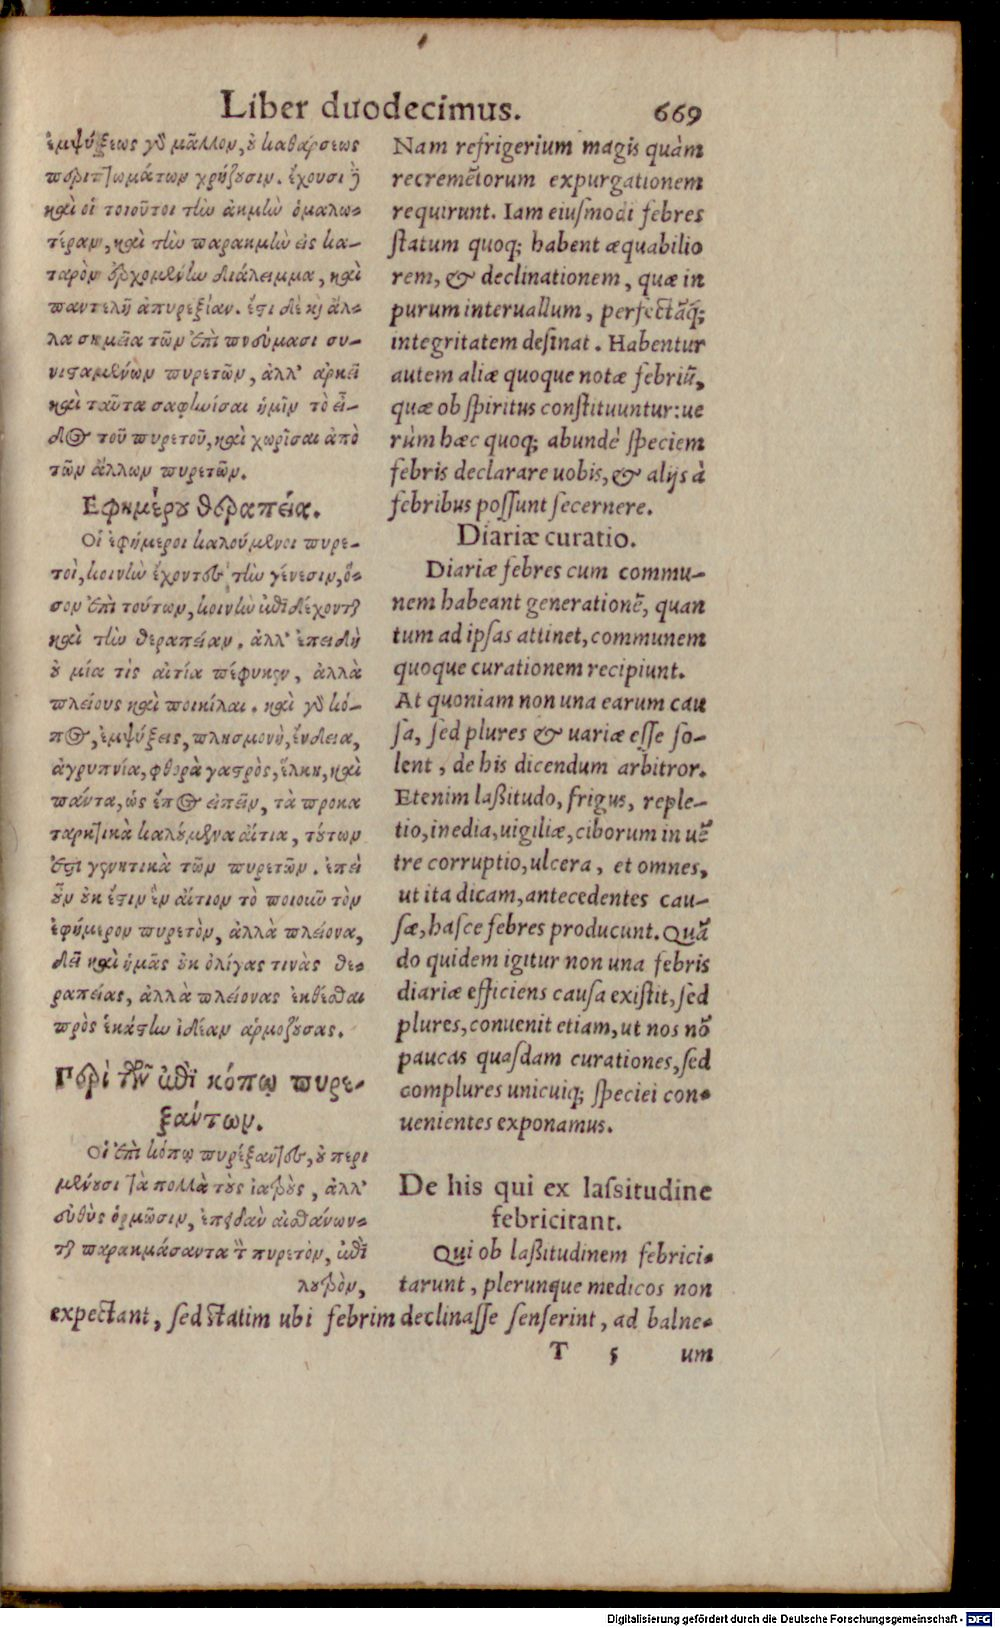 Liber duodecimus. 669
ἐμψύξεως γὰρ μᾶλλον, ȣ̓ καθάρσεως
περιττωμάτων χρῄζȣσιν. ἔχουσι δὲ
καὶ οἱ τοιοῦτοι τὴν ἀκμὴν ὁμαλω-
τέραν, καὶ τὴν παρακμὴν εἰς κα-
ταρὸν ἐρχομένην διάλειμμα, καὶ
παντελῆ ἀπυρεξίαν. ἔστι δὲ κỳ ἄλ-
λα σημεῖα τῶν ἐπὶ πνεύμασι συ-
νισταμένων πυρετῶν, ἀλλ' ἀρκεῖ
καὶ ταῦτα σαφηνίσαι ἡμῖν τὸ εἶ-
δος τοῦ πυρετοῦ, καὶ χωρίσαι ἀπὸ
τῶν ἄλλων πυρετῶν.
Εφημέρȣ θεραπεία.
Οἱ ἐφήμεροι καλούμενοι πυρε-
τοὶ, κοινὴν ἔχοντες τὴν γένεσιν, ὅ-
σον ἐπὶ τούτων, κοινὴν ἐπιδέχονται
καὶ τὴν θεραπείαν. ἀλλ' ἐπειδὴ
ȣ̓ μία τὶς αἰτία πέφυκεν, ἀλλὰ
πλείους καὶ ποικίλαι. καὶ γὰρ κό-
πος, ἐμψύξεις, πλησμονὴ, ἔνδεια,
ἀγρυπνία, φθορὰ γαστρὸς, ἕλκη, καὶ
πάντα, ὡς ἔπος εἰπεῖν, τὰ προκα
ταρκτικὰ καλȣ́μενα αἴτια, τȣ́των
ἐστι γεννητικὰ τῶν πυρετῶν. ἐπεὶ
ȣ̓͂ν ȣ̓κ ἔστιν ἓν αἴτιον τὸ ποιοῦν τὸν
ἐφήμερον πυρετὸν, ἀλλὰ πλείονα,
δεῖ καὶ ἡμᾶς ȣ̓κ ὀλίγας τινὰς θε-
ραπείας, ἀλλὰ πλείονας ἐκθέσθαι
πρὸς ἑκάστην ἰδέαν ἁρμοζȣ́σας.
Περὶ τῶν ἐπὶ κόπῳ πυρε-
ξάντων.
Οἱ ἐπὶ κόπῳ πυρέξαντες, ȣ̓ περι
μένȣσι τὰ πολλὰ τȣ̀ς ἰατρȣ̀ς, ἀλλ'
εὐθὺς ὁρμῶσιν, ἐπειδὰν αἰσθάνων-
ται παρακμάσαντα τὸν πυρετὸν, ἐπὶ
λουτρὸν,
Nam refrigerium magis quàm
recremẽtorum expurgationem
requirunt. Iam eiusmodi febres
statum quoq; habent æquabilio
rem, & declinationem, quæ in
purum interuallum, perfectãq́;
integritatem desinat. Habentur
autem aliæ quoque notæ febriũ,
quæ ob spiritus constituuntur: ue
rùm hæc quoq; abundè speciem
febris declarare uobis, & alijs à
febribus possunt secernere.
Diariæ curatio.
Diariæ febres cum commu-
nem habeant generationẽ, quan
tum ad ipsas attinet, communem
quoque curationem recipiunt.
At quoniam non una earum cau
sa, sed plures & uariæ esse so-
lent, de his dicendum arbitror.
Etenim laßitudo, frigus, reple-
tio, inedia, uigiliæ, ciborum in uẽ
tre corruptio, ulcera, et omnes,
ut ita dicam, antecedentes cau-
sæ, hasce febres producunt. Quã
do quidem igitur non una febris
diariæ efficiens causa existit, sed
plures, conuenit etiam, ut nos nõ
paucas quasdam curationes, sed
complures unicuiq; speciei con-
uenientes exponamus.
De his qui ex lassitudine
febricitant.
Qui ob laßitudinem febrici-
tarunt, plerunque medicos non
expectant, sed statim ubi febrim declinasse senserint, ad balne-
T 5 um
Digitalisierung gefördert durch die Deutsche Forschungsgemeinschaft - DFG